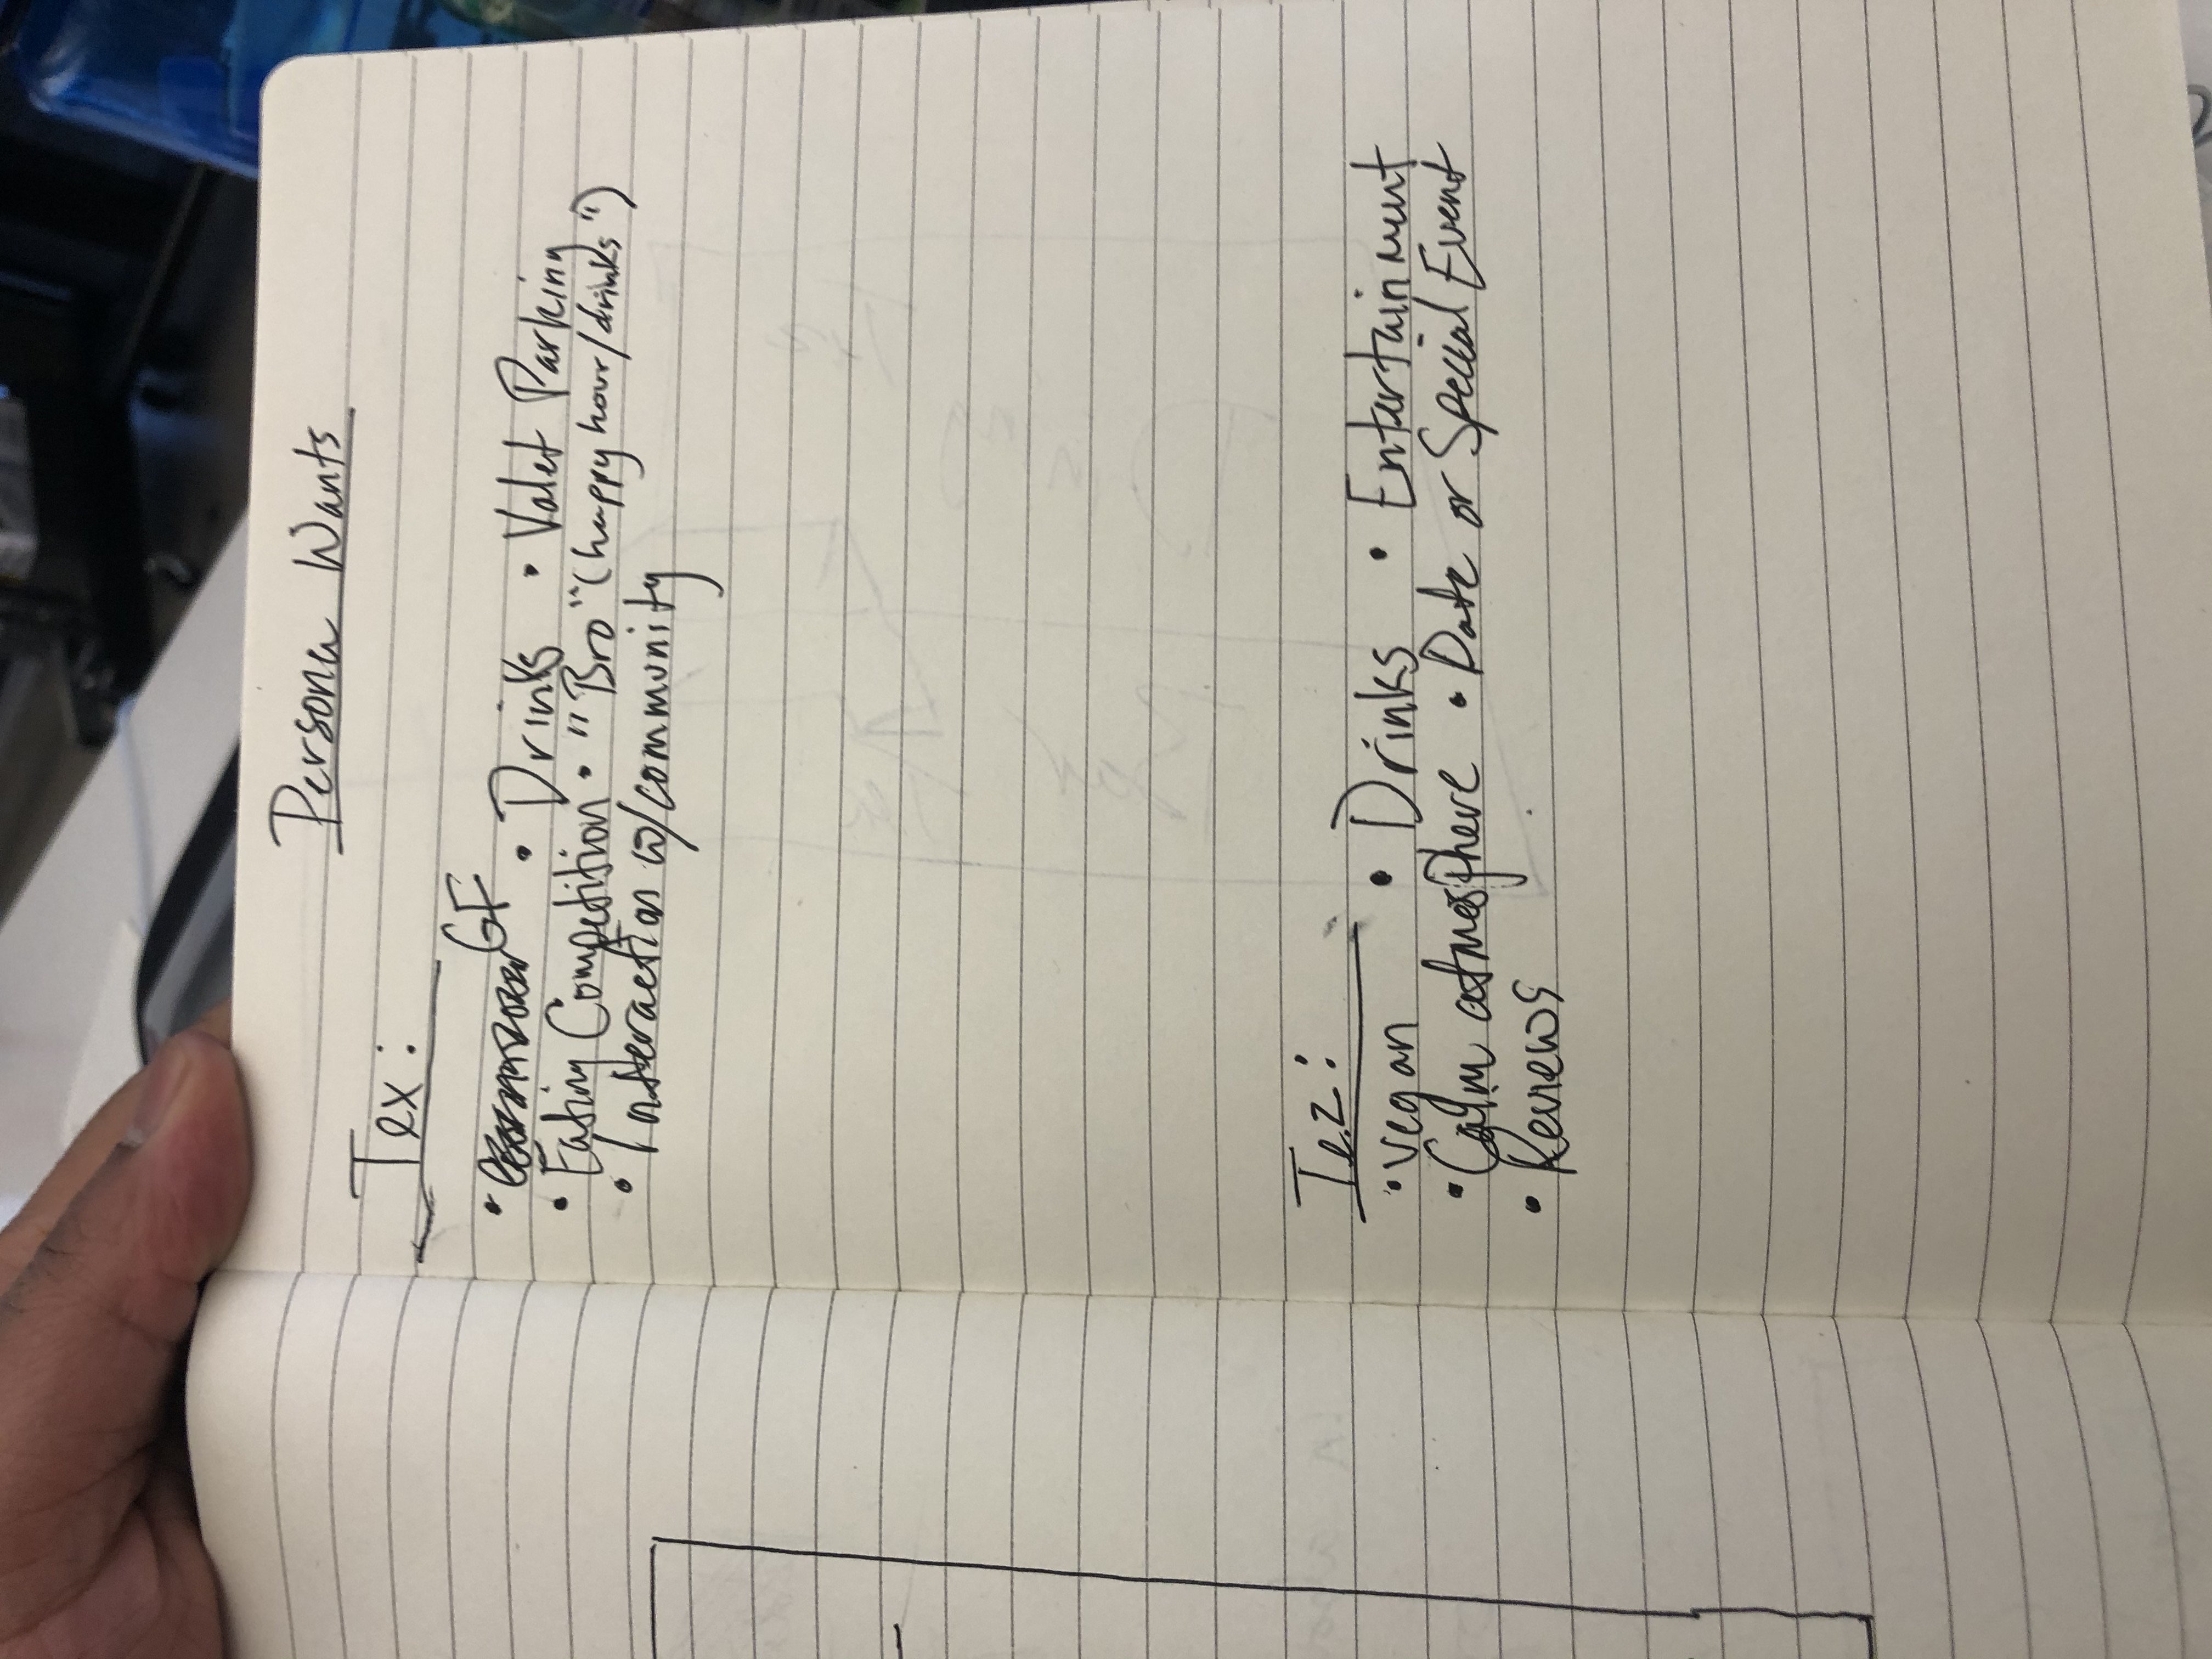 Persona Wants
Tex:
• GF • Drinks • Valet Parking
• Eating Competition • "Bro" (happy hour/drinks")
• Interaction w/community
Tez:
• vegan • Drinks • Entertainment
• Calm atmosphere • Date or Special Event
• Reviews